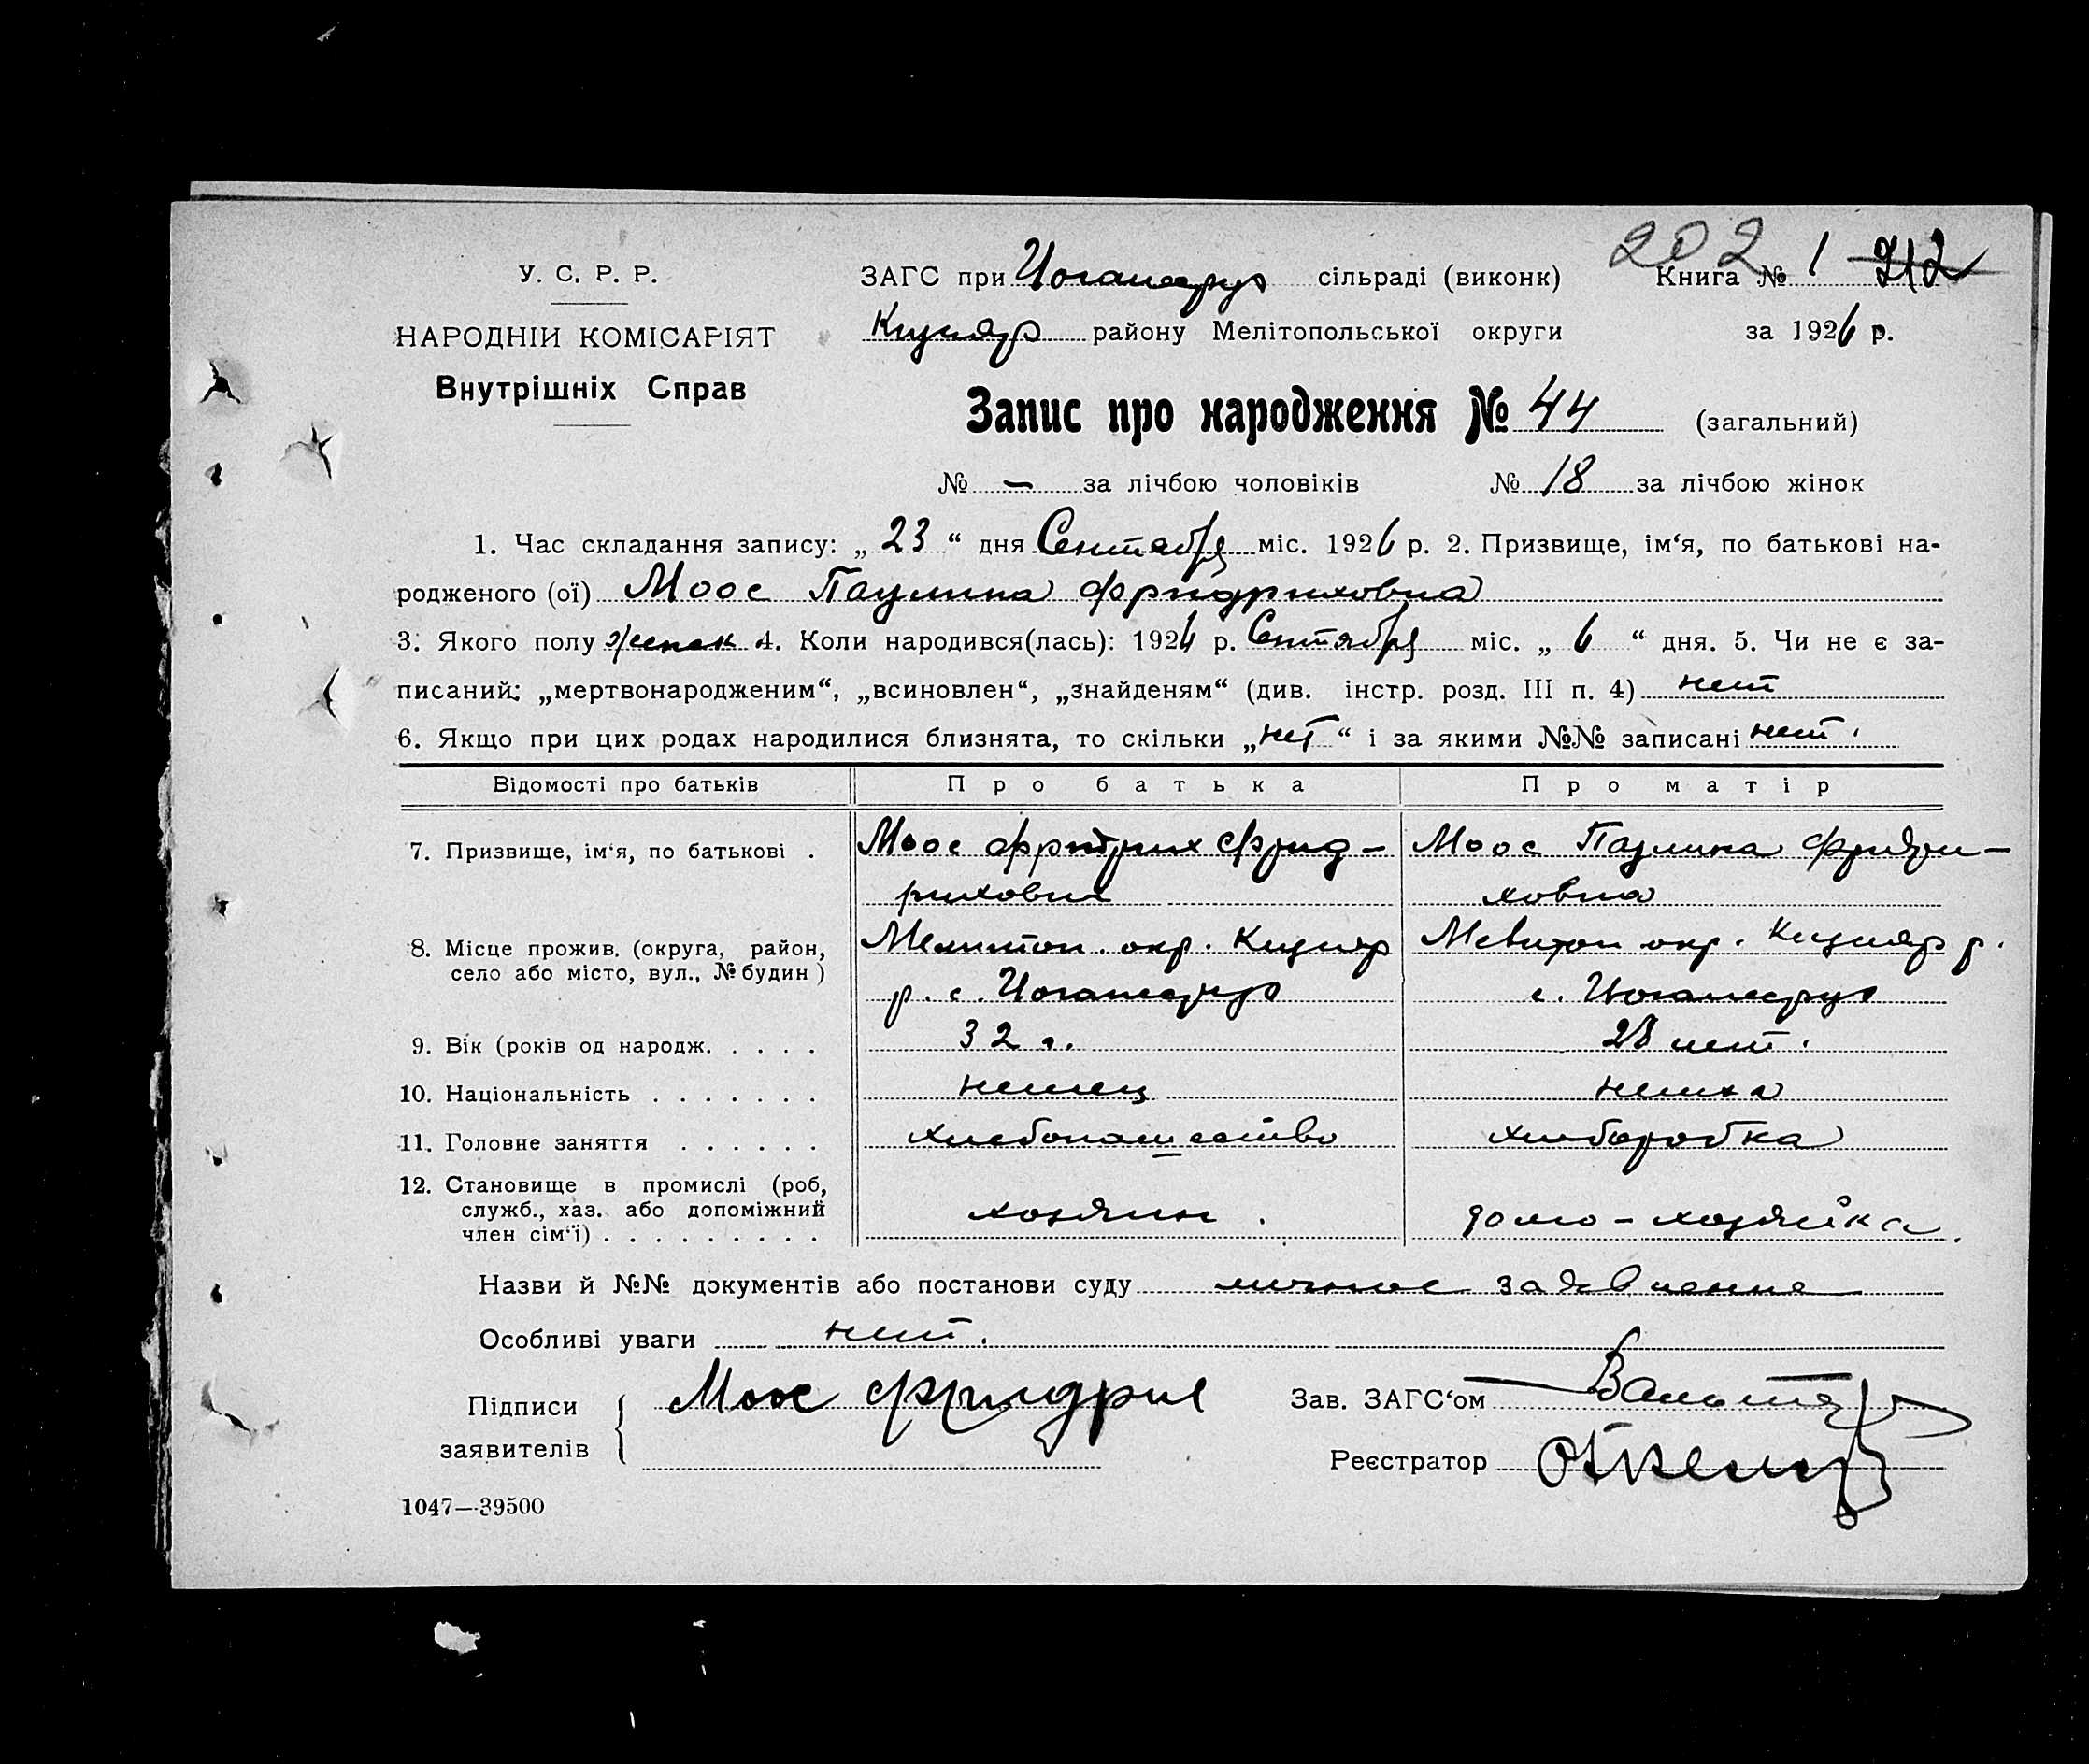 202
У. С. Р. Р.
ЗАГС при Иогансдрує сільраді (виконк) Книга № 1 212
НАРОДНІЙ КОМІСАРІЯТ
Внутрішніх Справ
району Мелітопольської округи за 1926 р.
Запис про народження № 44 (загальний)
№ — за лічбою чоловіків № 18 за лічбою жінок
1. Час складання запису: „ 23 “ дня Сентября міс. 1926 р. 2. Призвище, ім‘я, по батькові на-
родженого (ої) Моос Паулина Фридриховна
3. Якого полу женск 4. Коли народився(лась): 1926 р. Сентября міс. „ 6 “ дня. 5. Чи не є за-
писаний: „мертвонародженим“, „всиновлен“, „знайденям“ (див. інстр. розд. III п. 4) нет
6. Якщо при цих родах народилися близнята, то скільки „нет“ і за якими №№ записані нет.
Відомості про батьків Про батька Про матір
7. Призвище, ім‘я, по батькові . Моос Фридрих Фрид- Моос Паулина Фридри-
риховна ховна
8. Місце прожив. (округа, район, Мелитоп. окр. окр.
село або місто, вул., № будин) р. с. с.
9. Вік (років од народж. . . . . 32 г. 28 лет.
10. Національність . . . . . . . немец немка
11. Головне заняття . . . . . . хлебопашество хлеборобка
12. Становище в промислі (роб,
служб., хаз. або допоміжний хозяин. домо-хозяйка.
член сім‘ї) . . . . . . . . .
Назви й №№ документів або постанови суду личное заявление
Особливі уваги нет.
Підписи Моос Фридрих Зав. ЗАГС‘ом
заявителів Реєстратор
1047—39500